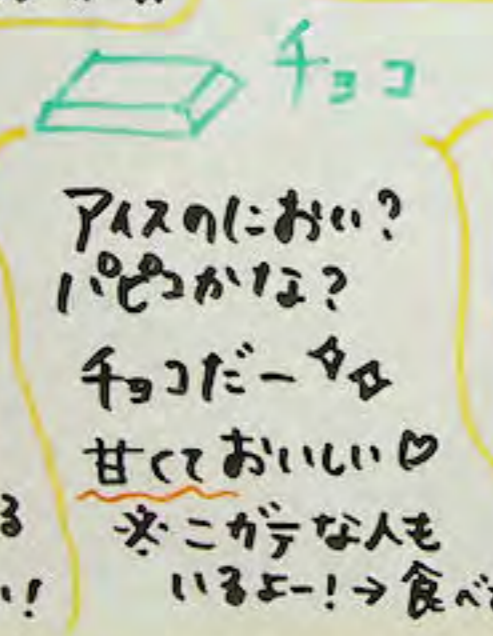 チョコ
アイスのにおい?
パピコかな?
チョコだー
甘くておいしい♡
る
※こガテな人も
い!
いるよー!→食べ